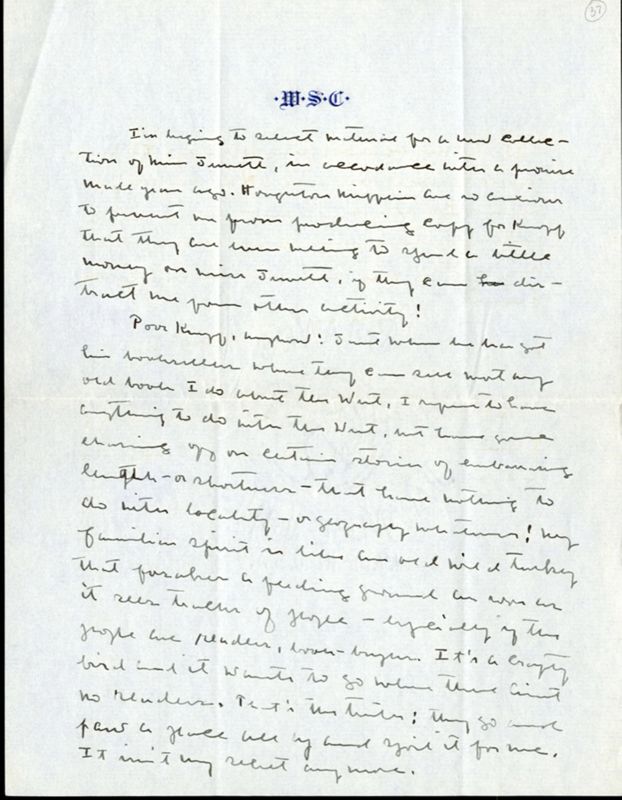 37
·W·S·C·
I'm trying to select material for a new collec-
tion of Miss Jewett, in accordance with a promise
made years ago. Houghton Mifflin are so anxious
to prevent me from producing copy for Knopf
that they are even willing to spend a little
money on Miss Jewett, if they can dis-
tract me from other activity!
Poor Knopf, anyhow! Just when he has got
his booksellers where they can sell most any
old book I do about the West, I refuse to have
anything to do with the West, but have gone
chasing off on certain stories of embarrassing
length - or shortness - that have nothing to
do with locality - or geography whatever! My
familiar spirit is like an old wild turkey
that forsakes a feeding ground as soon as
it sees tracks of people - especially if the
people are readers, book-buyers. It's a crafty
bird and it wants to go where there aint
no readers. That's the truth; they go and
paw a place all up and spoil it for me.
It isn't my secret any more.